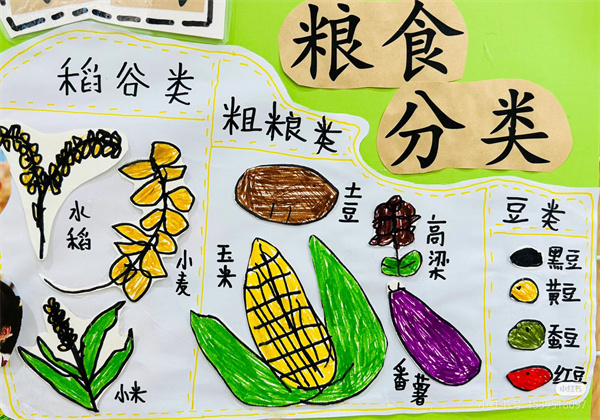 粮食
分类
稻谷类
水稻
小麦
小米
粗粮类
土豆
玉米
高梁
番薯
豆类
黑豆
黄豆
蚕豆
红豆
小红书